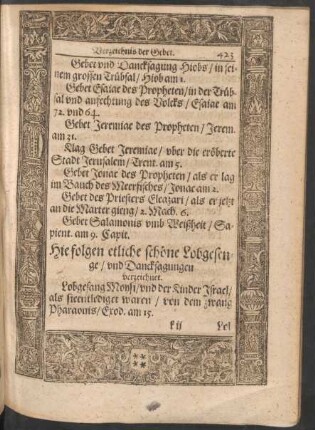 Verzeichnis der Gebet. 423
Gebet vnd Dancksagung Hiobs / in sei-
nem grossen Trübsal / Hiob am 1.
Gebet Esaiae des Propheten / in der Trüb-
sal vnd anfechtung des Volcks / Esaiae am
72. vnd 64.
Gebet Jeremiae des Propheten / Jerem.
am 31.
Klag Gebet Jeremiae / vber die eröberte
Stadt Jerusalem / Tren. am 5.
Gebet Jonae des Propheten / als er lag
im Bauch des Meerfisches / Jonae am 2.
Gebet des Priesters Eleazari / als er jetzt
an die Marter gieng / 2. Mach. 6.
Gebet Salamonis vmb Weißheit / Sa-
pient. am 9. Capit.
Hie folgen etliche schöne Lobgesen-
ge / vnd Dancksagungen
verzeichnet.
Lobgesang Moysi / vnd der Kinder Israel /
als sie entlediget waren / von dem zwang
Pharaonis / Exod. am 15.
k ij Lob